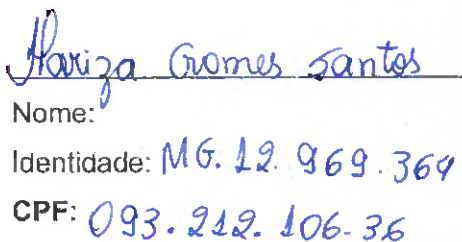 Mariza Gomes Santos
Nome:
Identidade: MG. 12. 969. 364
CPF: 093. 212. 106-36